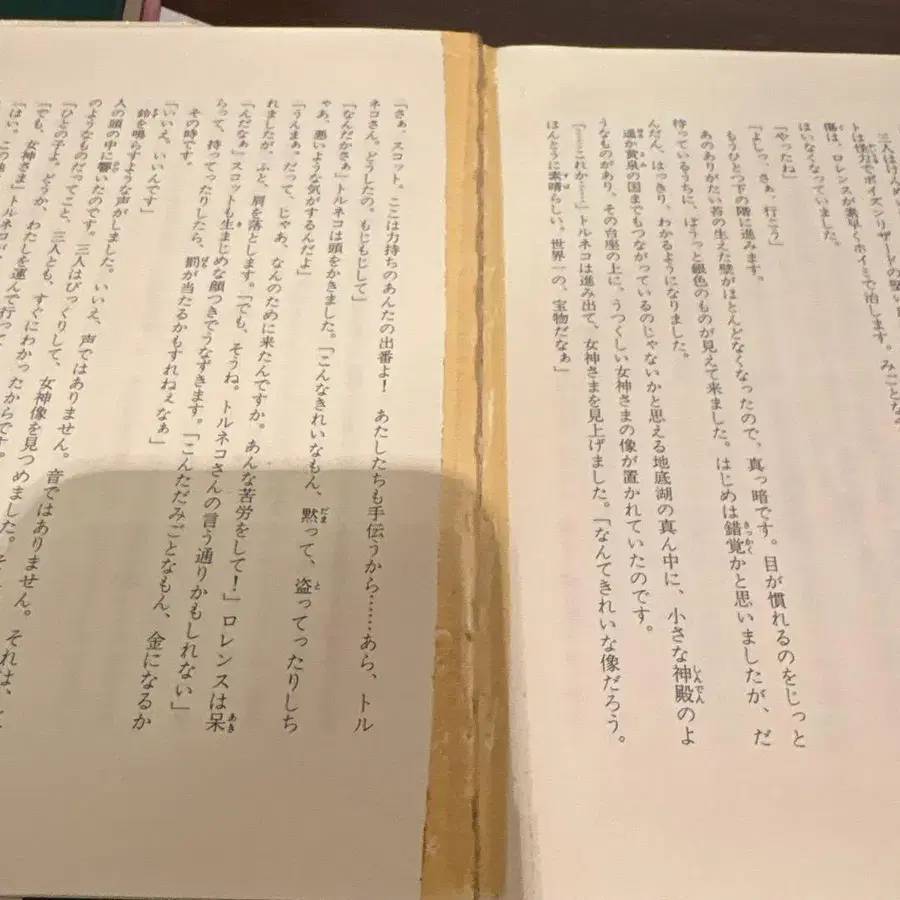 三人はけんめい
トは怪力でポイズンリザードの堅い
傷は、ロレンスが素早くホイミで治します。みごとな
はいなくなっていました。
「やったね」
「よしっ、さぁ、行こう」
もうひとつ下の階に進みます。
あのありがたい苔の生えた壁がほとんどなくなったので、真っ暗です。目が慣れるのをじっと
待っているうちに、ぼうっと銀色のものが見えて来ました。はじめは錯覚かと思いましたが、だ
んだん、はっきり、わかるようになりました。
遥か黄泉の国までもつながっているのじゃないかと思える地底湖の真ん中に、小さな神殿のよ
うなものがあり、その台座の上に、うつくしい女神さまの像が置かれていたのです。
「……これか……」トルネコは進み出て、女神さまを見上げました。「なんてきれいな像だろう。
ほんとうに素晴らしい。世界一の、宝物だなぁ」
「さぁ、スコット。ここは力持ちのあんたの出番よ！　あたしたちも手伝うから……あら、トル
ネコさん。どうしたの。もじもじして」
「なんだかさぁ」トルネコは頭をかきました。「こんなきれいなもん、黙って、盗ってったりしち
ゃあ、悪いような気がするんだよ」
「うんまぁ。だって、じゃあ、なんのために来たんですか。あんな苦労をして！」ロレンスは呆
れましたが、ふと、肩を落とします。「でも、そうね。トルネコさんの言う通りかもしれない」
「んだなぁ」スコットも生まじめな顔つきでうなずきます。「こんただみごとなもん、金になるか
らって、持ってったりしたら、罰が当たるかもすれねぇなぁ」
その時です。
「いいえ、いいんです」
鈴を鳴らすような声がしました。いいえ、声ではありません。音ではありません。それは、
人の頭の中に響いたのです。三人はびっくりして、女神像を見つめました。
のようなものだってこと、三人とも、すぐにわかったからです。
「ひとの子よ。どうか、わたしを運んで行って
「でも、女神さま」トルネコが、
「はい。この地